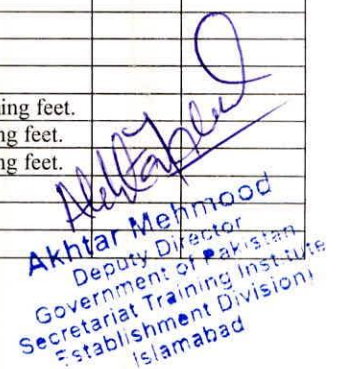 ing feet.
ng feet.
ng feet.
Akhtar Mehmood
Deputy Director
Government of Pakistan
Secretariat Training Institute
Establishment Division)
Islamabad